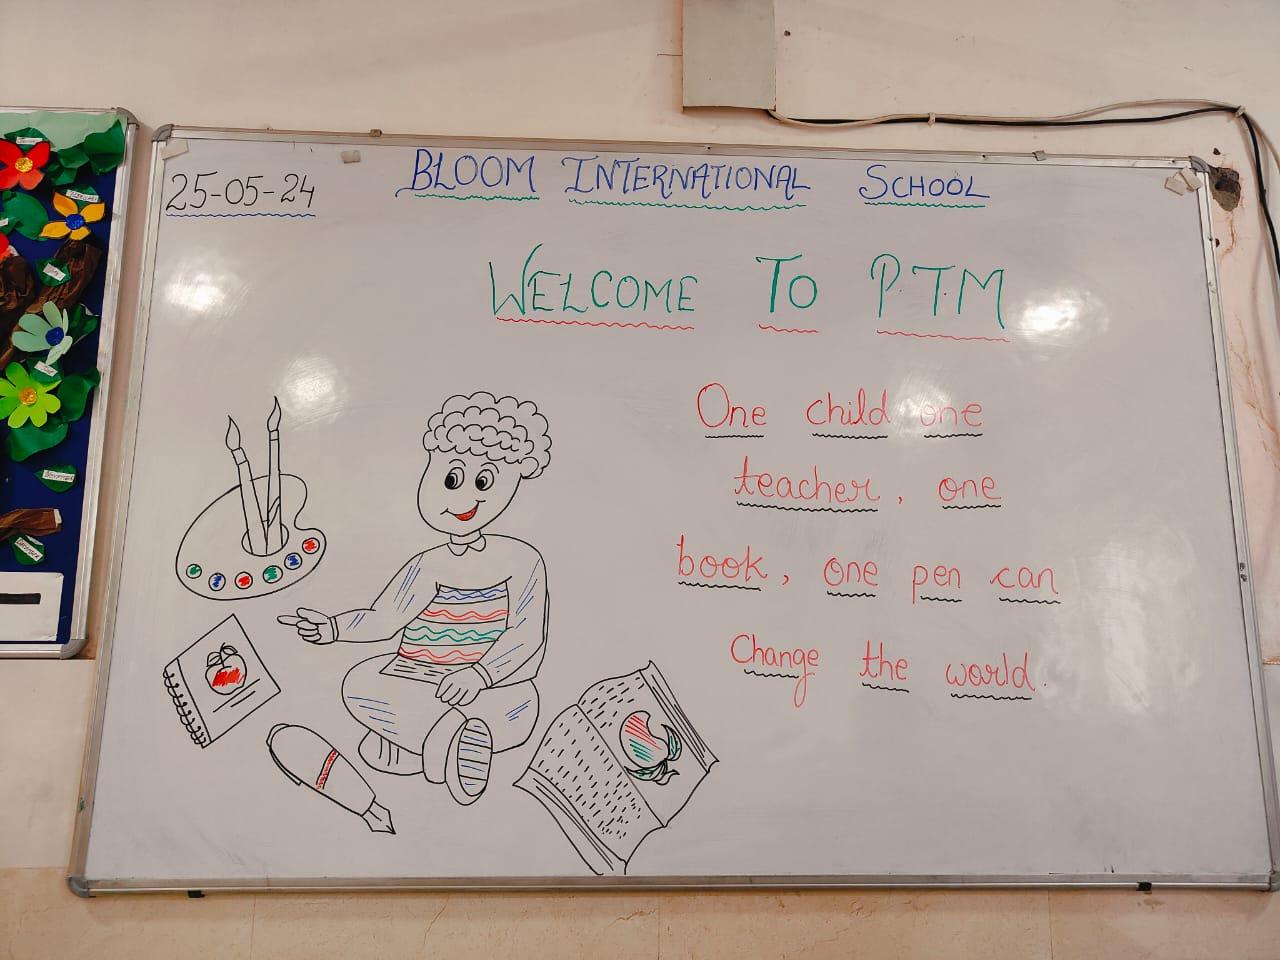 25-05-24
BLOOM INTERNATIONAL SCHOOL
WELCOME TO P.T.M
One child one
teacher, one
book, one pen can
Change the world.